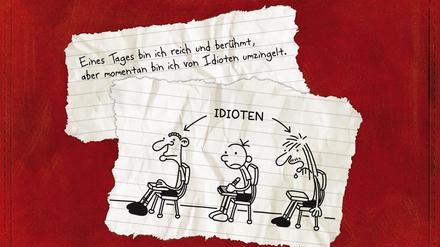 Eines Tages bin ich reich und berühmt,
aber momentan bin ich von Idioten umzingelt.
IDIOTEN